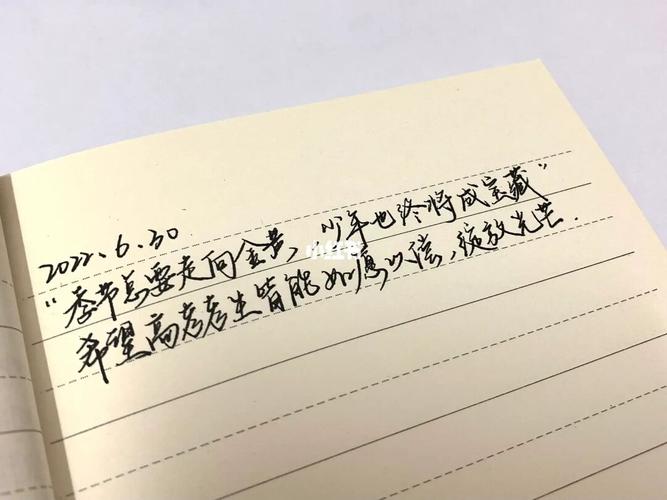 2022.6.30
“季节总要走向金黄，少年也终将成宝藏”
小红书
希望高考考生皆能如愿以偿，绽放光芒.